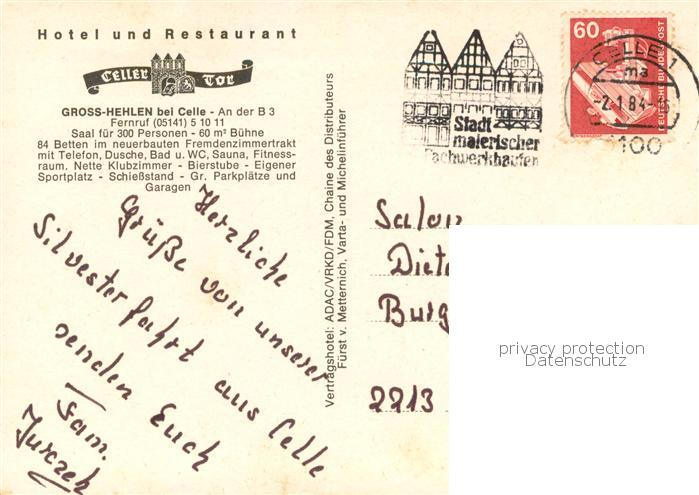 Hotel und Restaurant
CELLER TOR
GROSS-HEHLEN bei Celle - An der B 3
Fernruf (05141) 5 10 11
Saal für 300 Personen - 60 m² Bühne
84 Betten im neuerbauten Fremdenzimmertrakt
mit Telefon, Dusche, Bad u. WC, Sauna, Fitness-
raum. Nette Klubzimmer - Bierstube - Eigener
Sportplatz - Schießstand - Gr. Parkplätze und
Garagen
Herzliche
Grüße von unserer
Silvesterfahrt aus Celle
senden Euch
Fam.
Jurczek
Vertragshotel: ADAC/VRKD/FDM, Chaine des Distributeurs
Fürst v. Metternich, Varta- und Michelinführer
Stadt
malerischer
Fachwerkhäuser
60
DEUTSCHE BUNDESPOST
CELLE 1
ma
-2.1.84-
100
Salon
Diete
Burg
2213
privacy protection
Datenschutz